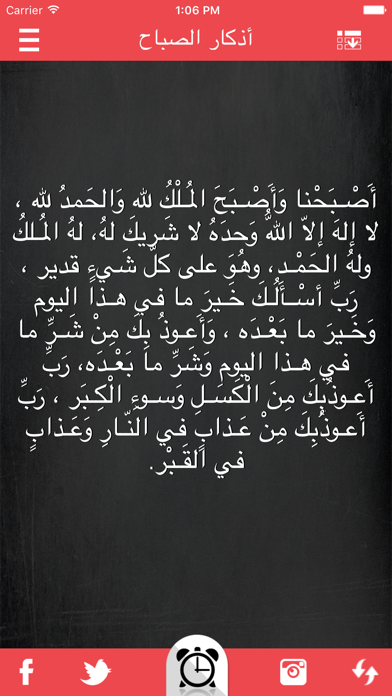 Carrier 1:06 PM
أذكار الصباح
أَصْـبَحْنا وَأَصْـبَحَ المُلْكُ لله وَالحَمدُ لله ،
لا إلهَ إلاّ اللّهُ وَحدَهُ لا شَريكَ لهُ، لهُ المُلكُ
ولهُ الحَمْـد، وهُوَ على كلّ شَيءٍ قدير ،
رَبِّ أسْـأَلُكَ خَـيرَ ما في هـذا اليوم
وَخَيرَ ما بَعْـدَه ، وَأَعـوذُ بِكَ مِنْ شَـرِّ ما
في هـذا اليوم وَشَرِّ ما بَعْـدَه، رَبِّ
أَعـوذُبِكَ مِنَ الْكَسَـلِ وَسـوءِ الْكِبَـر ، رَبِّ
أَعـوذُبِكَ مِنْ عَـذابٍ في النّـارِ وَعَـذابٍ
في القَـبْر.